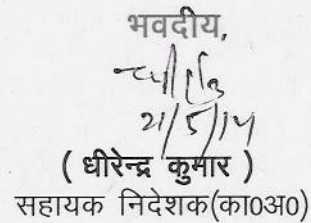 भवदीय,
21/5/14
( धीरेन्द्र कुमार )
सहायक निदेशक(का0अ0)